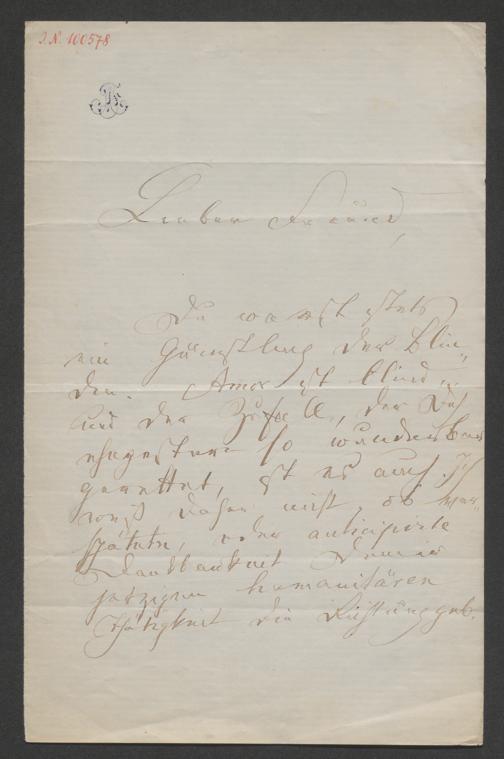 I.N. 100578
Lieber Freund,
Du warst stets
ein Günstling der Blin-
den. Amor ist blind –
und der Zufall, der Dich
ehegestern so wunderbar
gerettet, ist es auch. Ich
weiß daher nicht, ob ver-
spätete, oder anticipirte
Dankbarkeit Deiner
jetzigen humanitären
Thätigkeit die Richtung geb.